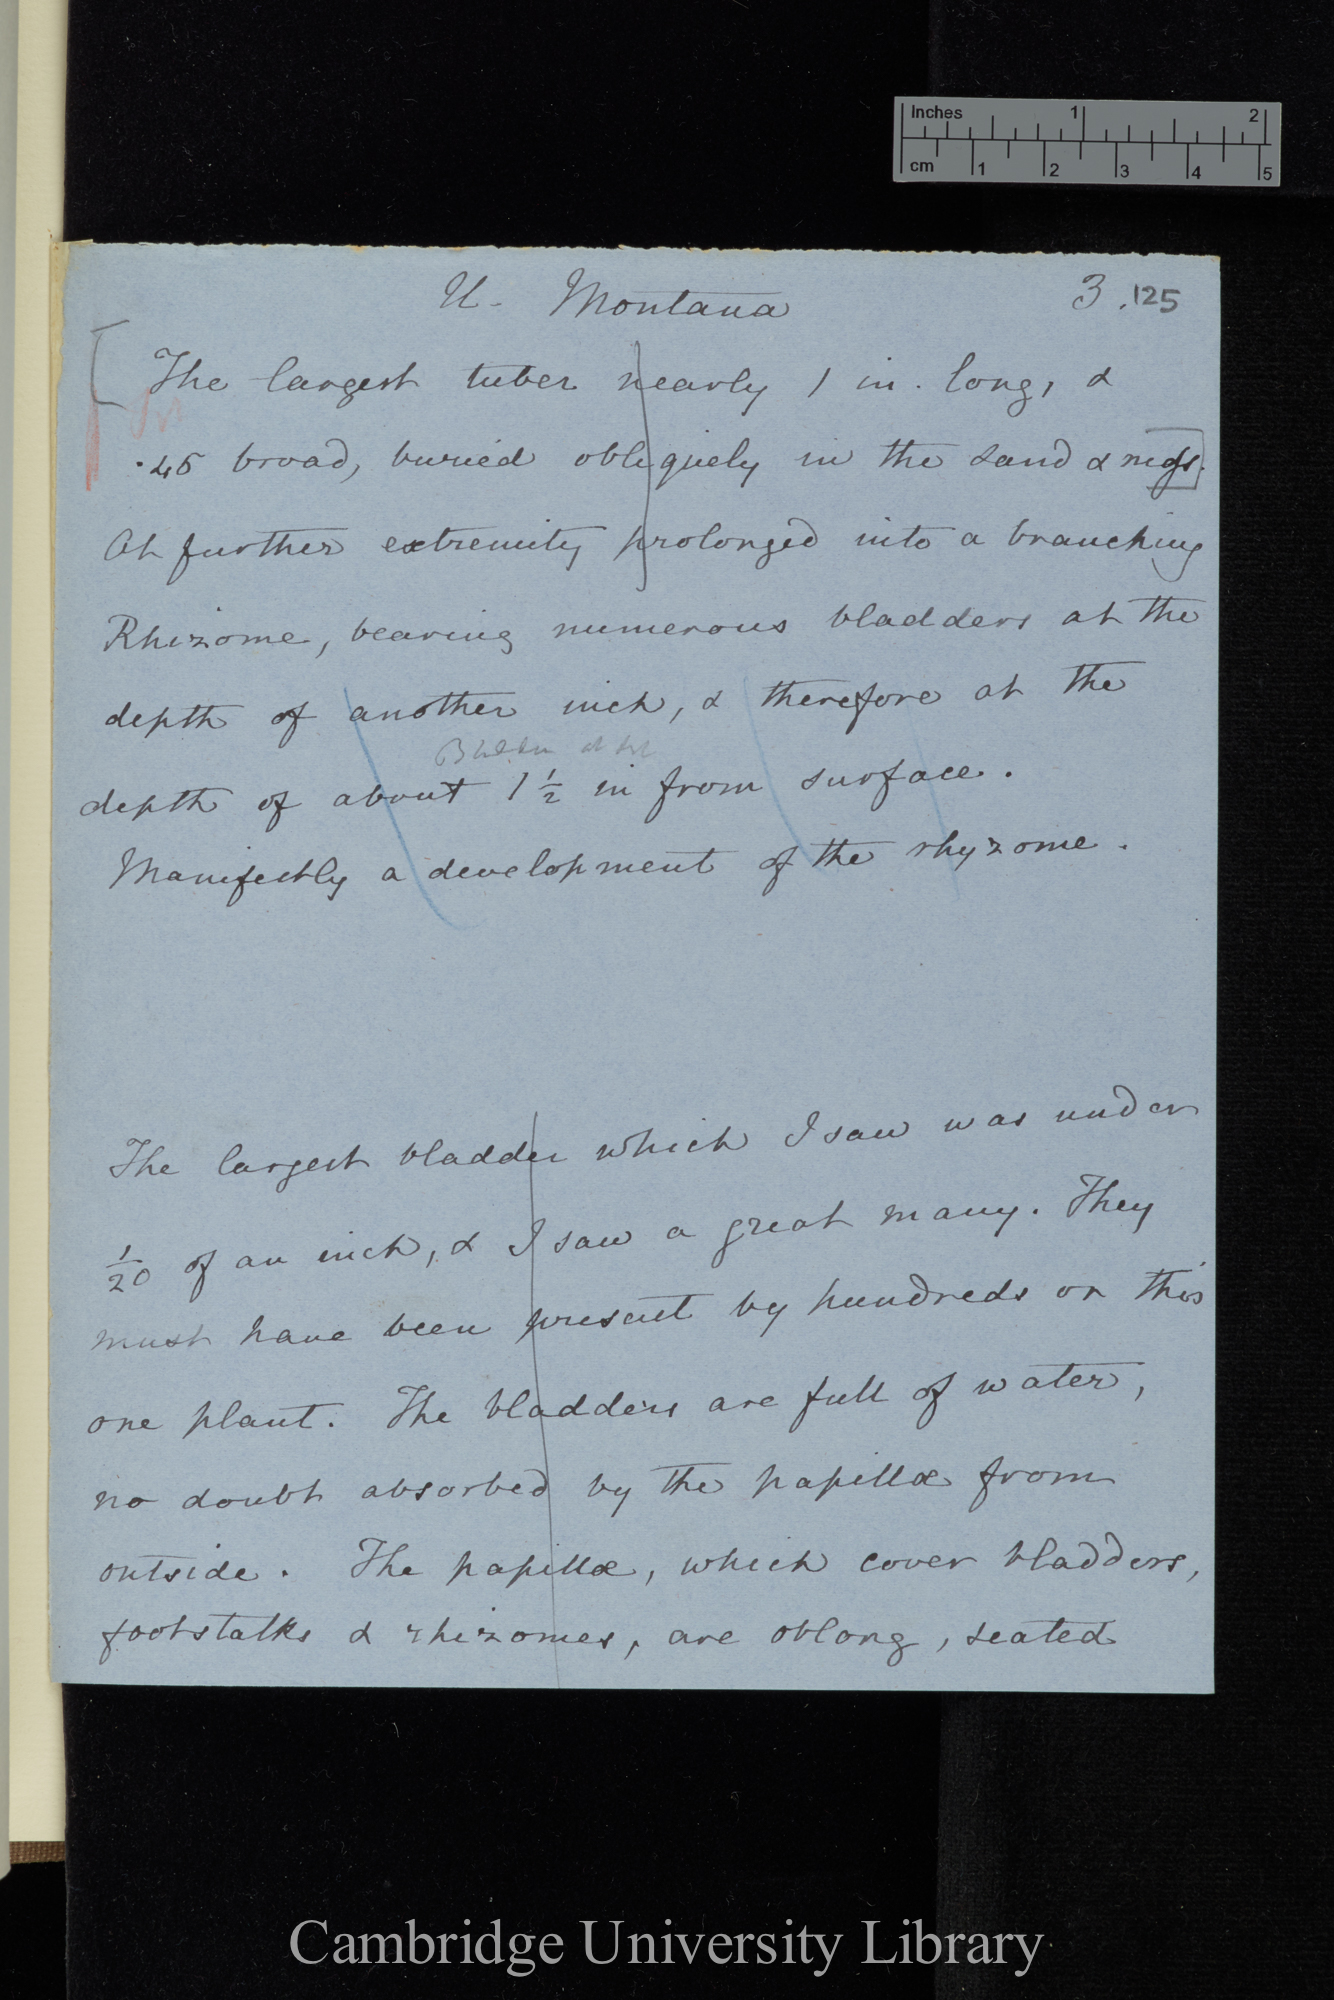 Inches 1 2
cm 1 2 3 4 5
U. Montana 3. 125
The largest tuber nearly 1 in. long, &
.45 broad, buried obliquely in the sand &
At further extremity prolonged into a branching
Rhizome, bearing numerous bladders at the
depth of another inch, & therefore at the
depth of about 1 1/2 in from surface.
Manifestly a development of the rhyzome.
The largest bladder which I saw was under
1/20 of an inch, & I saw a great many. They
must have been present by hundreds on this
one plant. The bladders are full of water,
no doubt absorbed by the papillæ from
outside. The papillæ, which cover bladders,
footstalks & rhizomes, are oblong, seated
Cambridge University Library